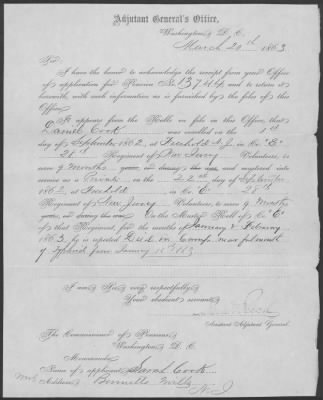 Adjutant General's Office,
Washington, D. C.
March 20th 1863
Sir:
I have the honor to acknowledge the receipt from your Office
of application for Pension No. 13744 and to return it
herewith, with such information as is furnished by the files of this
Office.
It appears from the Rolls on file in this Office, that
Daniel Cook was enrolled on the 1st
day of September 1862, at Freehold N. J. in Co. "E"
28th Regiment of New Jersey Volunteers, to
serve 9 Months years, or during the war and mustered into
service as a Private on the 22nd day of September
1862, at Freehold in Co. E 28th
Regiment of New Jersey Volunteers, to serve 9 Months
years, or during the war. On the Muster Roll of Co. "E"
of that Regiment, for the months of January & February
1863, he is reported Died in Camp near Falmouth
of Typhoid January 1863
I am, Sir, very respectfully,
Your obedient servant,
Assistant Adjutant General.
The Commissioner of Pensions,
Washington, D. C.
Memoranda:
Name of applicant Sarah Cook
Address Mills
N. J.